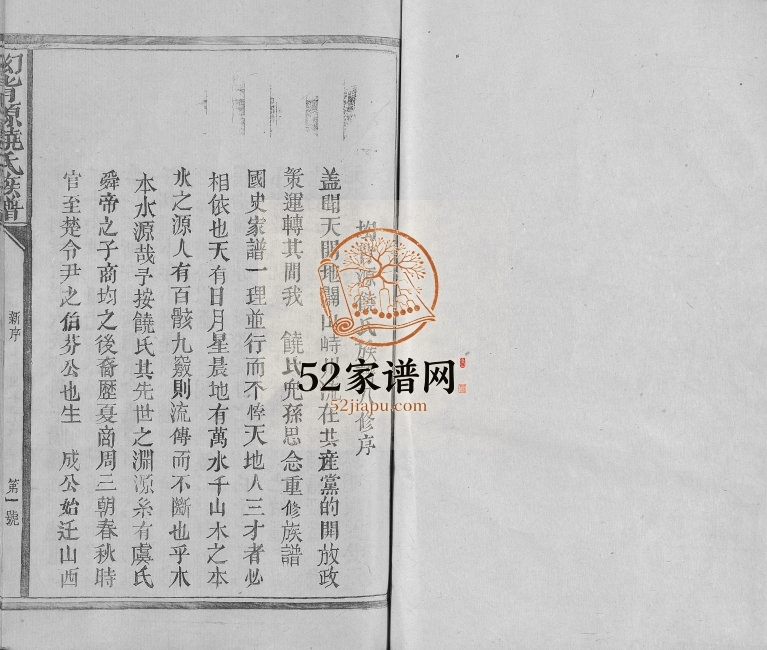 源饒氏族
修序
盖聞天開地闢山峙川流在共産黨的開放政
策運轉其間我 饒氏兒孫思念重修族譜
國史家譜一理並行而不悖天地人三才者必
相依也天有日月星晨地有萬水千山木之本
水之源人有百骸九竅則流傳而不斷也乎木
本水源哉予按饒氏其先世之淵源系有虞氏
舜帝之子商均之後裔歷夏商周三朝春秋時
官至楚令尹之伯芬公也生 成公始迁山西
源饒氏族譜
新序
第一號
52家谱网
52jiapu.com